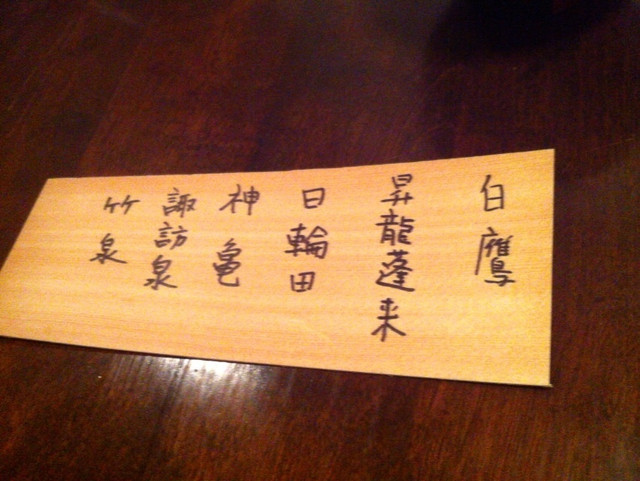 白鷹
昇龍蓬来
日輪田
神亀
諏訪泉
竹泉